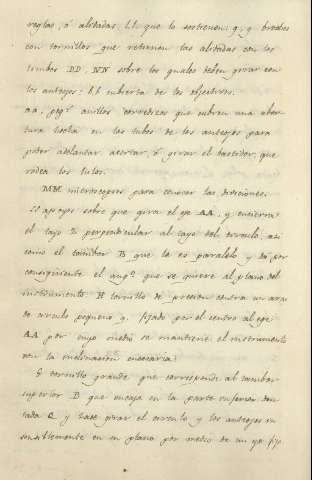 reglas, ó alidadas, LL que lo sostienen: q, q brocles
con tornillos que retienen las alidadas con los
limbos DD, NN sobre los quales deben girar con
los anteojos: h.h cubierta de los objectivos.
aa, peqs anillos corredizos que cubren una aber-
tura hecha en los tubos de los anteojos para
poder adelantar, acortar, ó girar el bastidor, que
rodea los tubos.
MM microscopios para conocer las divisiones.
apoyo sobre que gira el eje AA, y encierra
el eje perpendicular al del circulo, asi
como el tambor B que lo es paralelo y por
consiguiente el angº que se quiere al plano del
instrumento. H tornillo de presion contra un
circulo pequeño g, fijado por el centro al eje
AA por cuyo medio se mantiene el instrumento
con la inclinacion necesaria.
tornillo grande que corresponde al tambor
superior B que encaja en la parte inferior den-
tada Q y hace girar el circulo y los anteojos in
sensiblemente en su plano por medio de un